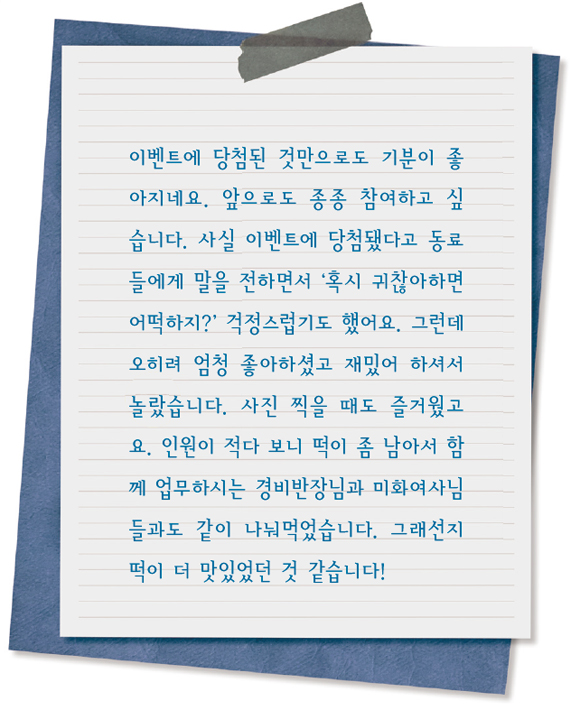 이벤트에 당첨된 것만으로도 기분이 좋
아지네요. 앞으로도 종종 참여하고 싶
습니다. 사실 이벤트에 당첨됐다고 동료
들에게 말을 전하면서 ‘혹시 귀찮아하면
어떡하지?’ 걱정스럽기도 했어요. 그런데
오히려 엄청 좋아하셨고 재밌어 하셔서
놀랐습니다. 사진 찍을 때도 즐거웠고
요. 인원이 적다 보니 떡이 좀 남아서 함
께 업무하시는 경비반장님과 미화여사님
들과도 같이 나눠먹었습니다. 그래선지
떡이 더 맛있었던 것 같습니다!